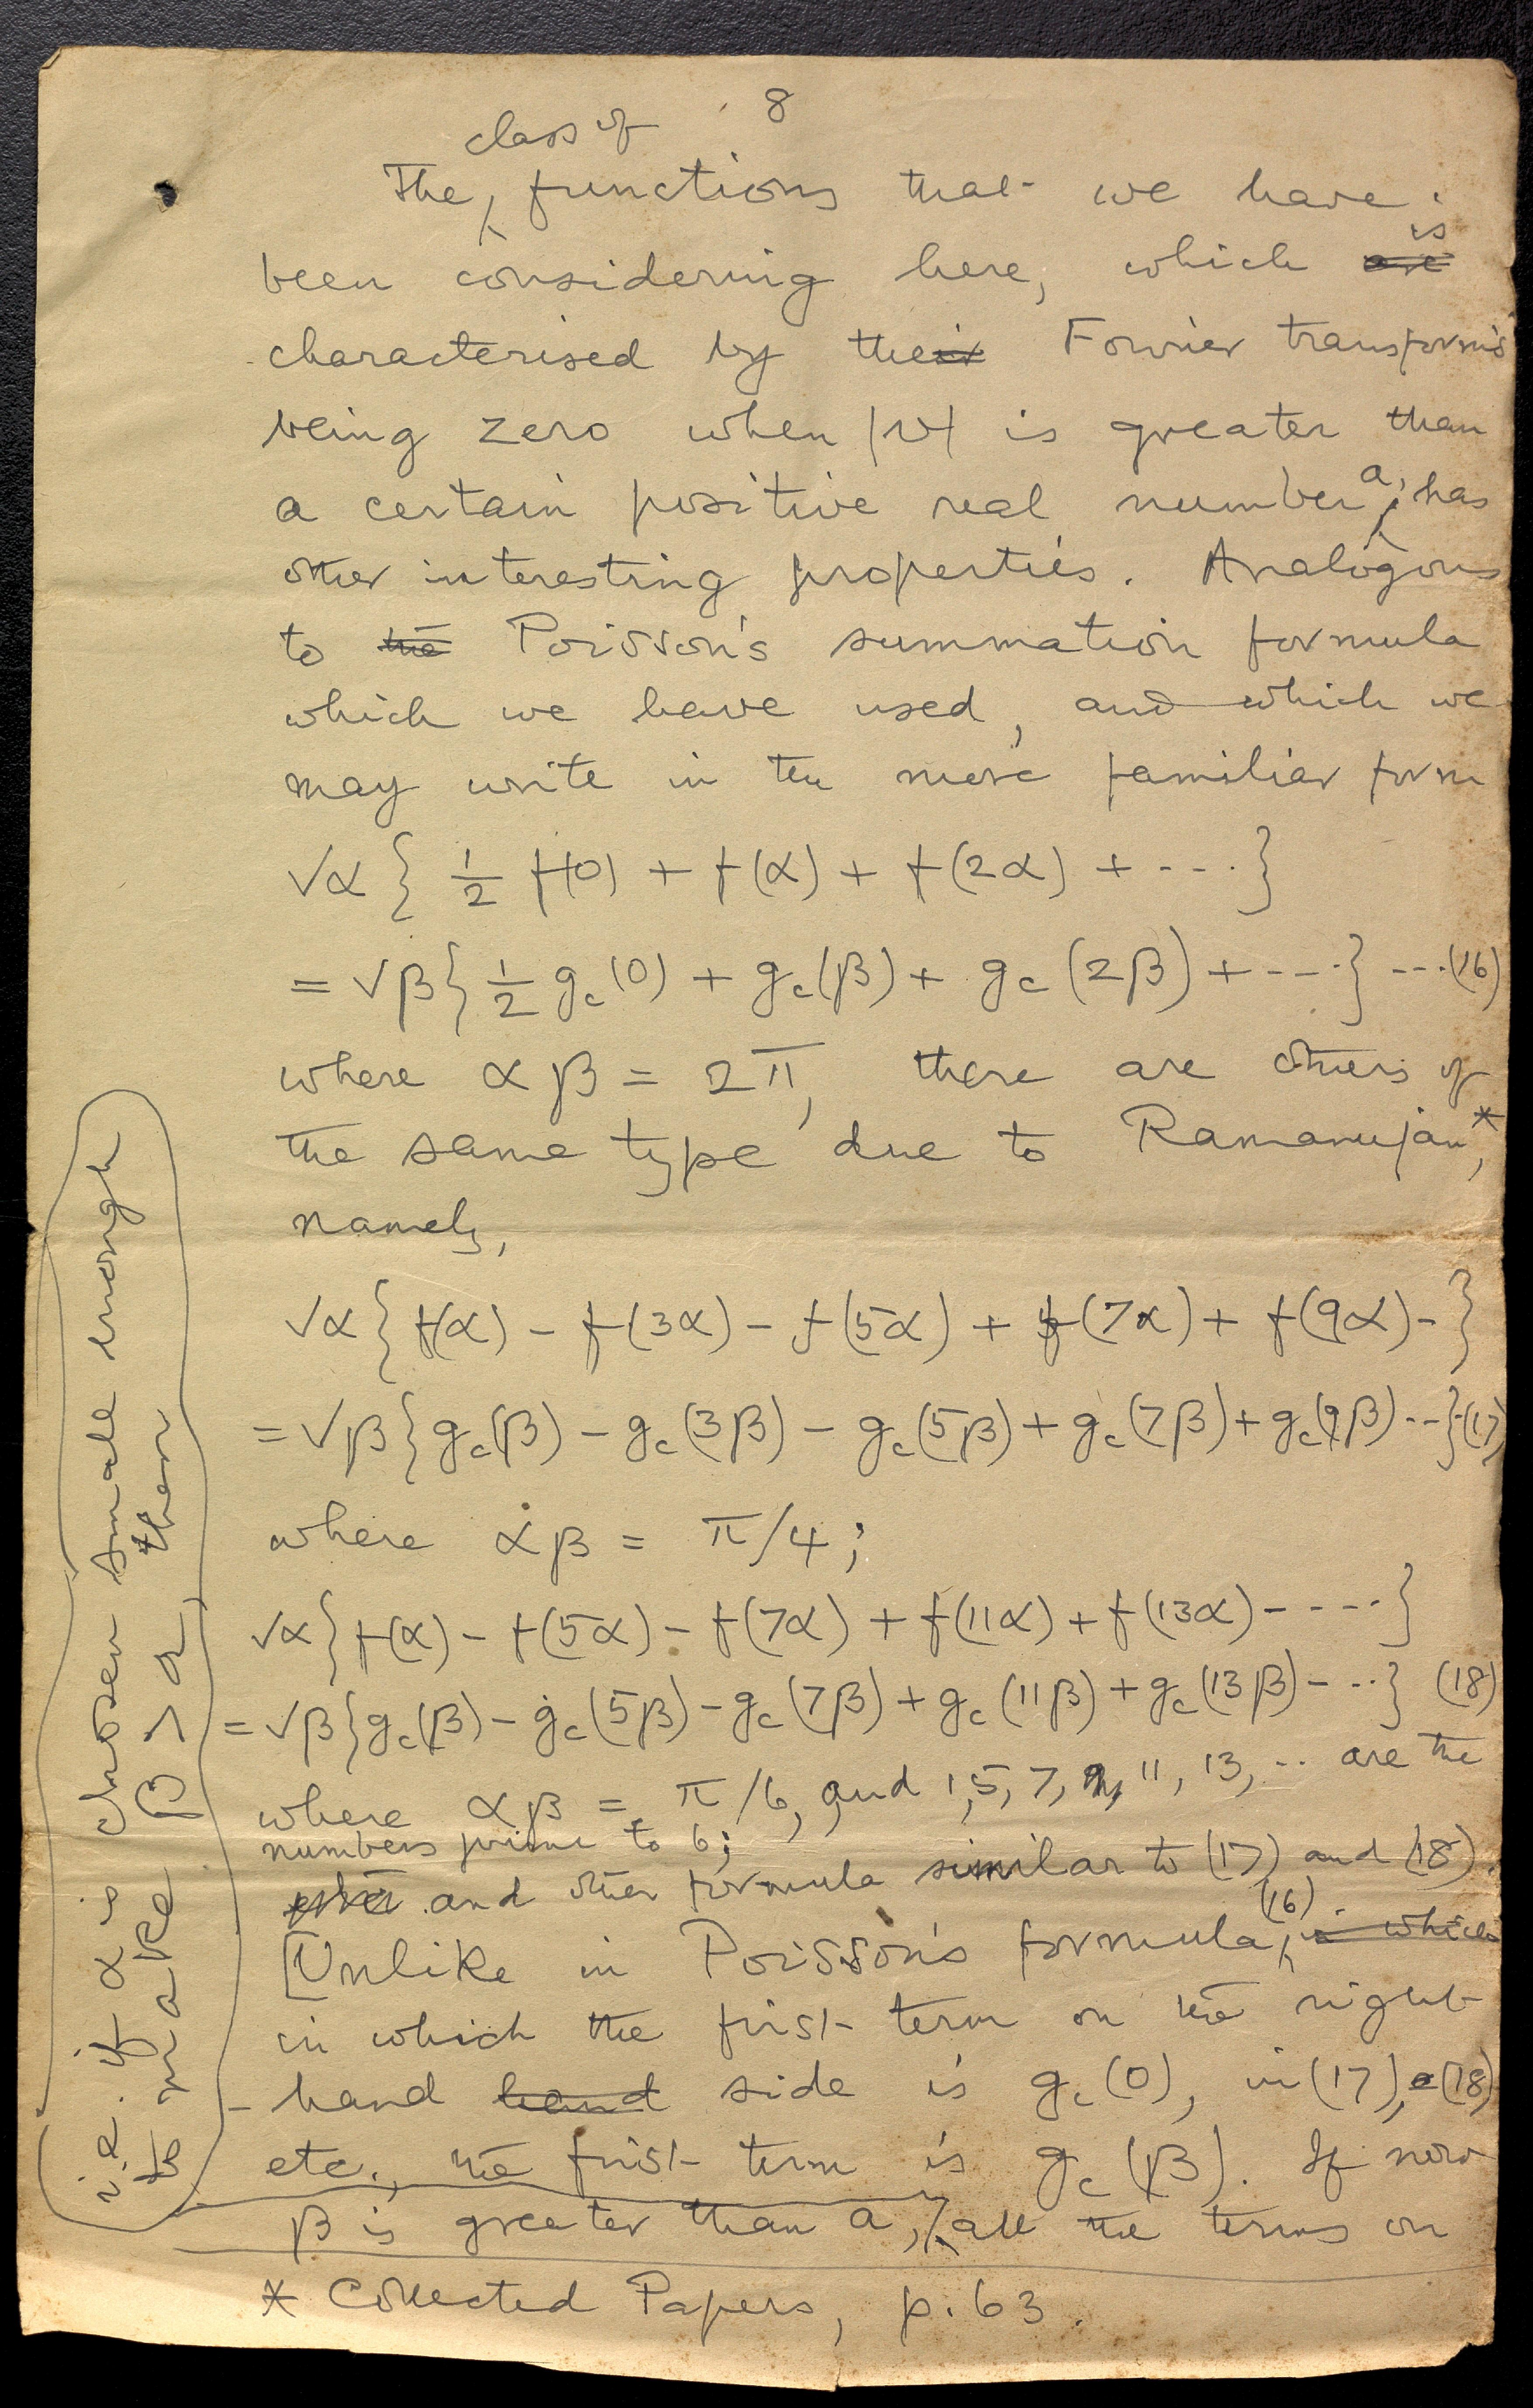 8
class of
The functions that we have
is
been considering here, which are
characterised by their Fourier transforms
being zero when |ν| is greater than
a certain positive real number a, has
other interesting properties. Analogous
to the Poisson's summation formula
which we have used, and which we
may write in the more familiar form
√α { 1/2 f(0) + f(α) + f(2α) + ---- }
= √β { 1/2 g_c(0) + g_c(β) + g_c(2β) + ---- } ---(16)
where αβ = 2π, there are others of
the same type due to Ramanujan*,
namely,
√α { f(α) - f(3α) - f(5α) + f(7α) + f(9α) - }
= √β { g_c(β) - g_c(3β) - g_c(5β) + g_c(7β) + g_c(9β) --- } (17)
where αβ = π/4;
√α { f(α) - f(5α) - f(7α) + f(11α) + f(13α) - ---- }
= √β { g_c(β) - g_c(5β) - g_c(7β) + g_c(11β) + g_c(13β) - --- } (18)
where αβ = π/6, and 1, 5, 7, 11, 13, -- are the
numbers prime to 6;
and other formula similar to (17) and (18).
[Unlike in Poisson's formula (16), in which
in which the first term on the right-
hand hand side is g_c(0), in (17), (18)
etc., the first term is g_c(β). If now
β is greater than a, all the terms on
* Collected Papers, p. 63.
i.e. if α is chosen small enough
to make β > a, then